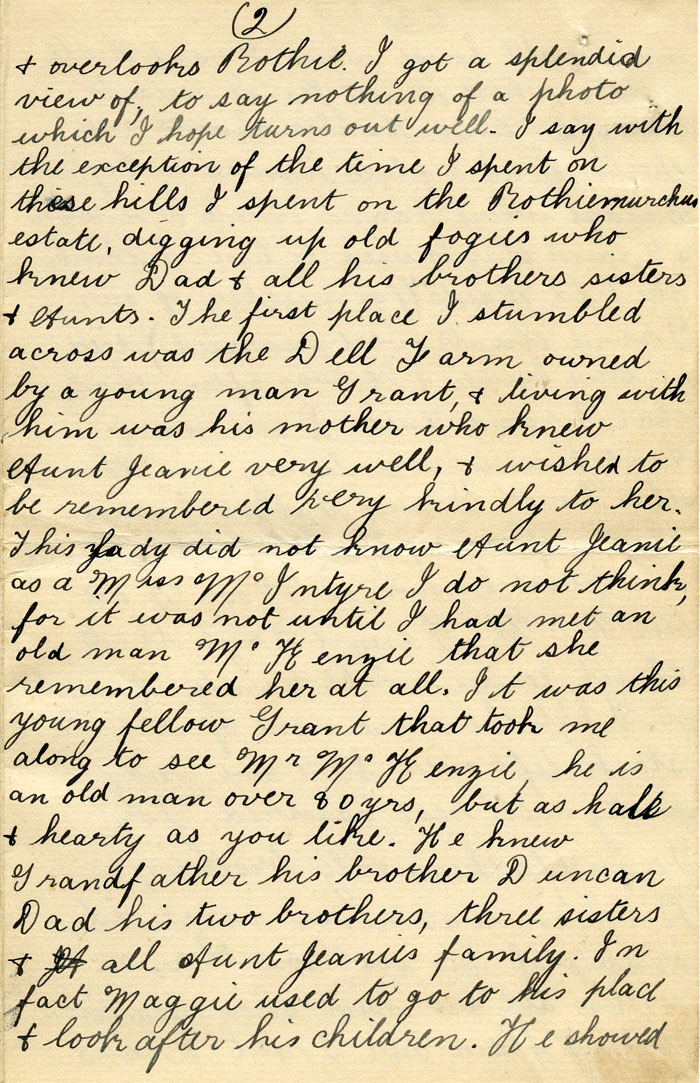 (2)
& overlooks Rothie. I got a splendid
view of, to say nothing of a photo
which I hope turns out well. I say with
the exception of the time I spent on
these hills I spent on the Rothiemurchus
estate, digging up old fogies who
knew Dad & all his brothers sisters
& Aunts. The first place I stumbled
across was the Dell Farm owned
by a young man Grant, & living with
him was his mother who knew
Aunt Jeanie very well, & wished to
be remembered very kindly to her.
This lady did not know Aunt Jeanie
as a Miss McIntyre I do not think,
for it was not until I had met an
old man McKenzie that she
remembered her at all. It was this
young fellow Grant that took me
along to see Mr McKenzie, he is
an old man over 80 yrs, but as hale
& hearty as you like. He knew
Grandfather his brother Duncan
Dad his two brothers, three sisters
& all Aunt Jeanies family. In
fact Maggie used to go to his place
& look after his children. He showed